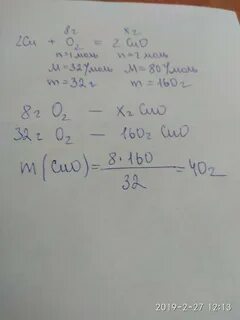 8г x г
2Cu + O₂ = 2 CuO
n=1моль n=2 моль
M=32г/моль M=80г/моль
m=32г m=160г
8г O₂ — x г CuO
32г O₂ — 160г CuO
m(CuO) = 8·160/32 = 40г
2019-2-27 12:13